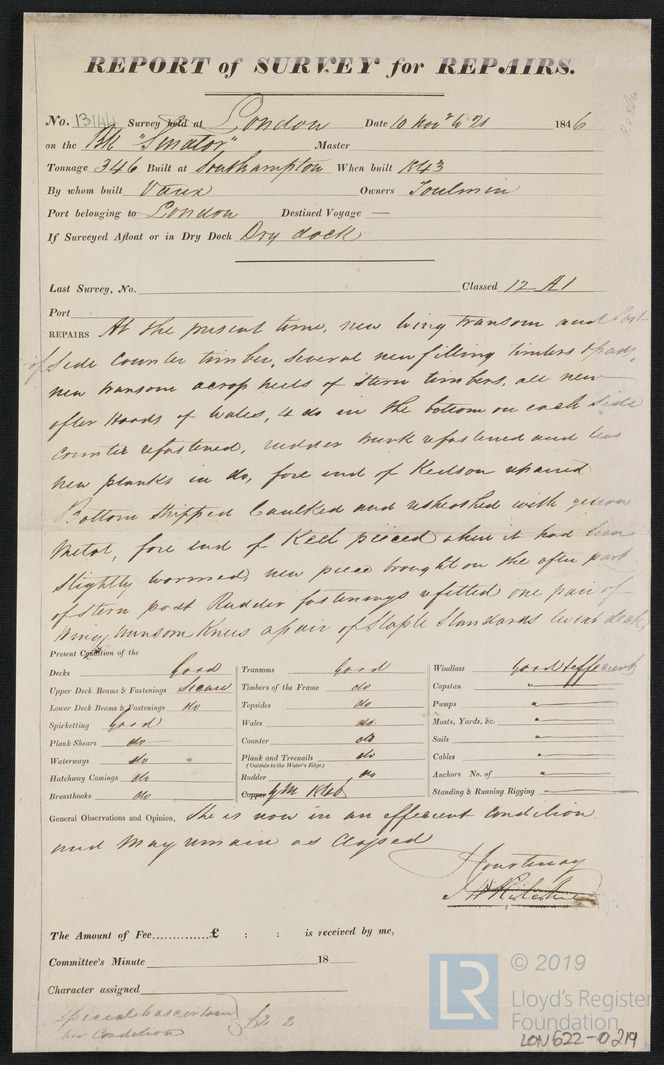 REPORT of SURVEY for REPAIRS.
No. 13144 Survey held at London Date 10 Novr to 21 1846
on the Bk "Senator," Master
Tonnage 346 Built at Southampton When built 1843
By whom built Vaux Owners Toulmin
Port belonging to London Destined Voyage —
If Surveyed Afloat or in Dry Dock Dry dock
Last Survey, No. Classed 12 A1
Port
REPAIRS At the present time, new wing transom and Port
Side Counter timber, Several new filling timbers & pads,
new transom across heels of Stern timbers, all new
after Hoods of Wales, 4 do in the bottom on each Side
Counter refastened, rudder trunk refastened and two
new planks in do, fore end of Keelson repaired
Bottom Stripped Caulked and resheathed with yellow
Metal, fore end of Keel pieced when it had been
Slightly wormed, new piece brought on the after part
of Stern post Rudder fastenings refitted one pair of
Wing transom Knees a pair of Staple Standards twixt decks
Present Condition of the
Decks Good
Upper Deck Beams & Fastenings Secure
Lower Deck Beams & Fastenings do
Spirketting Good
Plank Shears do
Waterways do
Hatchway Comings do
Breasthooks do
Transoms Good
Timbers of the Frame do
Topsides do
Wales do
Counter do
Plank and Treenails do
(Outside to the Water's Edge)
Rudder do
Copper YM 1846
Windlass Good & efficient
Capstan "
Pumps "
Masts, Yards, &c. "
Sails "
Cables "
Anchors No. of "
Standing & Running Rigging "
General Observations and Opinion, She is now in an efficient Condition
and may remain as Classed
Courtenay
The Amount of Fee..............£ : : is received by me,
Committee's Minute 18
Character assigned
Special to ascertain £2.2
her Condition
LR © 2019
Lloyd's Register
Foundation
LON622-0219